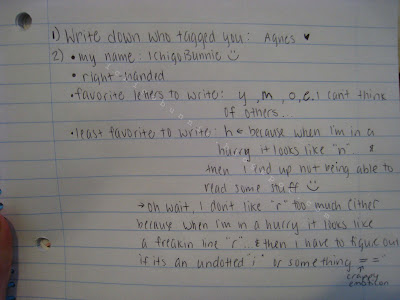 1) Write down who tagged you: Agnes ♥
2) • my name: IchigoBunnie ☺
• right handed
• favorite letters to write: y, m, o, e. I can't think
of others...
• least favorite to write: h ← because when I'm in a
hurry it looks like "n" .. &
then I end up not being able to
read some stuff ☺
→ oh wait, I don't like "r" too much either
because when I'm in a hurry it looks like
a freakin line "r".. & then I have to figure out
if its an undotted "i" or something = ="
↑
crappy
emoticon